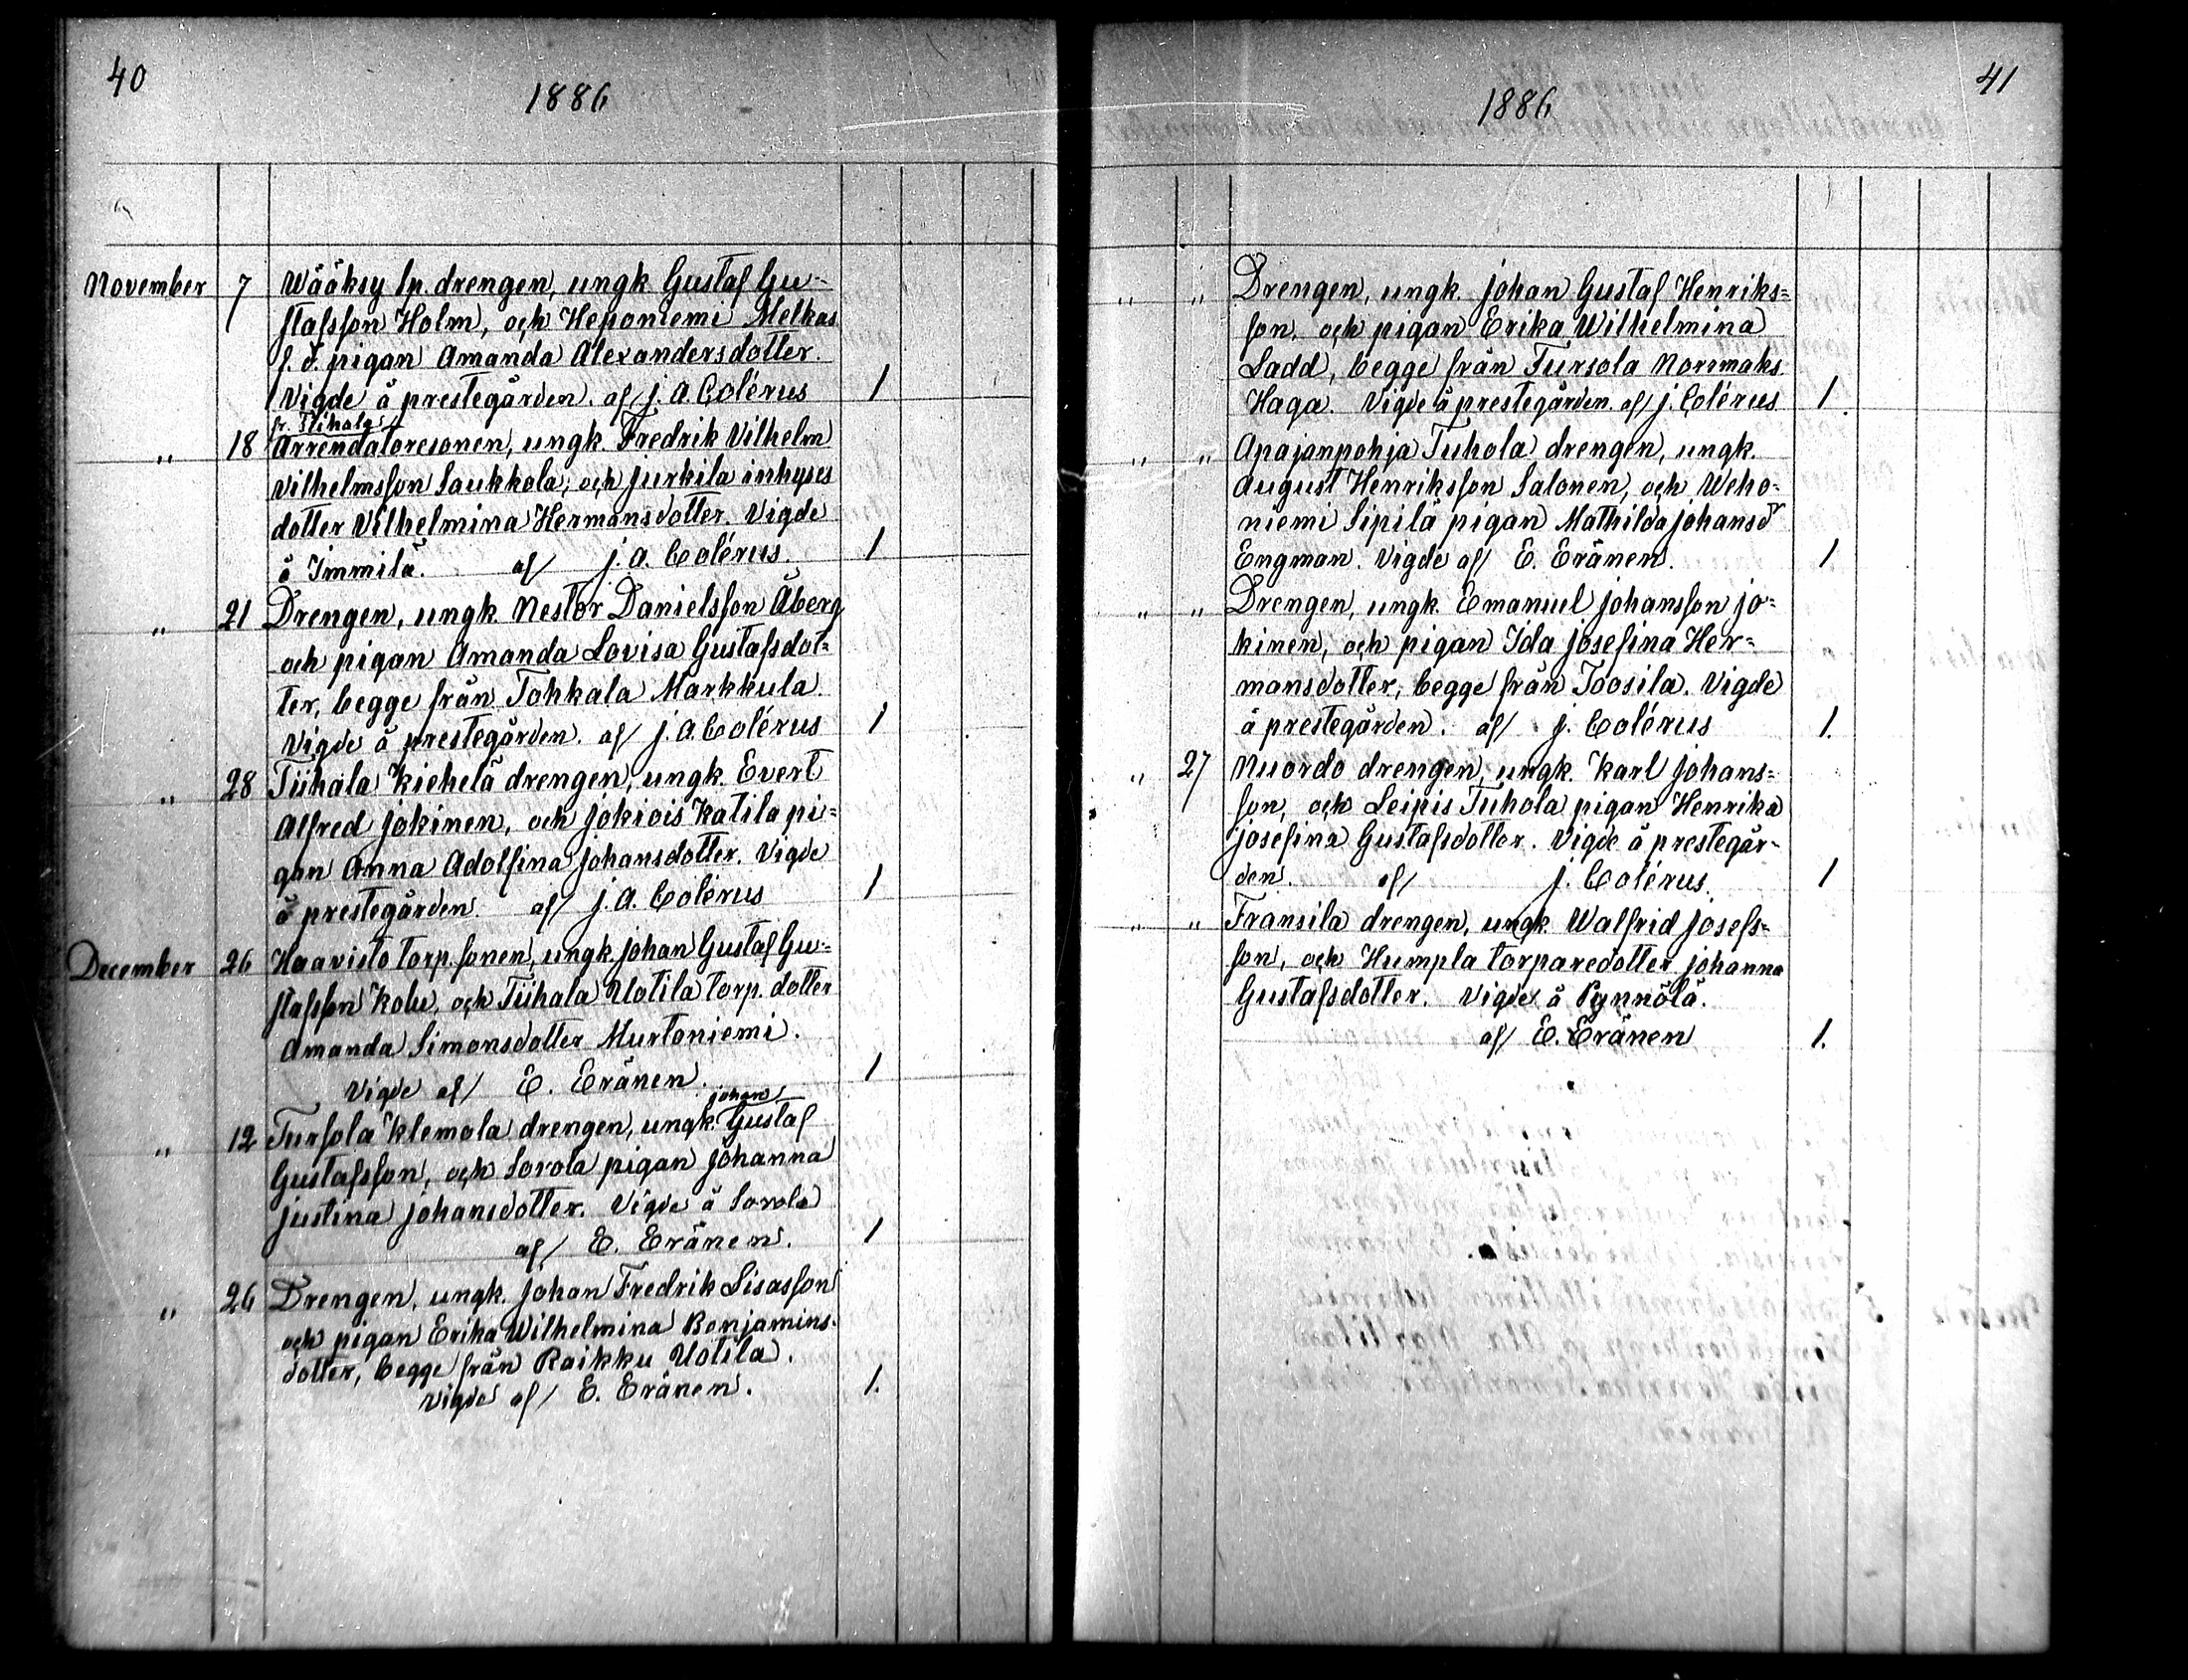 40
1886
November 7 Wääksy sp. drengen, ungk Gustaf Gu-
stafsson Holm, och Heponiemi Melkas
s. d. pigan Amanda Alexandersdotter.
Vigde å prestegården. af J. A. Colérus 1
fr. Tiihala
" 18 Arrendatoresonen, ungk. Fredrik Vilhelm
Vilhelmsson Saukkola, och Jurkila inhyses
dotter Vilhelmina Hermansdotter. Vigde
å Immilä. af J. A. Colérus. 1
" 21 Drengen, ungk. Nestor Danielsson Åberg
och pigan Amanda Lovisa Gustafsdot=
ter, begge från Tohkala Markkula.
Vigde å prestegården. af J. A. Colérus 1
" 28 Tiihala Kiehelä drengen, ungk. Evert
Alfred Jokinen, och Jokiois Katila pi=
gan Anna Adolfina Johansdotter. Vigde
å prestegården. af J. A. Colérus 1
December 26 Haavisto torp. sonen, ungk. Johan Gustaf Gu=
stafsson Kolu, och Tiihala Uotila torp. dotter
Amanda Simonsdotter Murtoniemi.
Vigde af E. Eränen. 1
Johan
" 12 Tursola Klemola drengen, ungk. Gustaf
Gustafsson, och Sorola pigan Johanna
Justina Johansdotter. Vigde å Sorola
af E. Eränen. 1
" 26 Drengen, ungk. Johan Fredrik Lisasson
och pigan Erika Wilhelmina Benjamins-
dotter, begge från Raikku Uotila.
Vigde af E. Eränen. 1.
41
1886
" " Drengen, ungk. Johan Gustaf Henriks=
son, och pigan Erika Wilhelmina
Ladd, begge från Tursola Norrmaks
Haga. Vigde å prestegården. af J. Colérus 1.
" " Apajanpohja Tuhola drengen, ungk.
August Henriksson Salonen, och Weho-
niemi Sipilä pigan Mathilda Johansdr
Engman. Vigde af E. Eränen. 1
" " Drengen, ungk. Emanuel Johansson Jo=
kinen, och pigan Ida Josefina Her=
mansdotter, begge från Toosila. Vigde
å prestegården. af J. Colérus 1.
" 27 Nuordo drengen, ungk. Karl Johans=
son, och Leipis Tuhola pigan Henrika
Josefina Gustafsdotter. Vigde å prestegår-
den. af J. Colérus. 1
" " Fransila drengen, ungk. Walfrid Josefs=
son, och Humpla torparedotter Johanna
Gustafsdotter. Vigde å Pynnölä.
af E. Eränen 1.